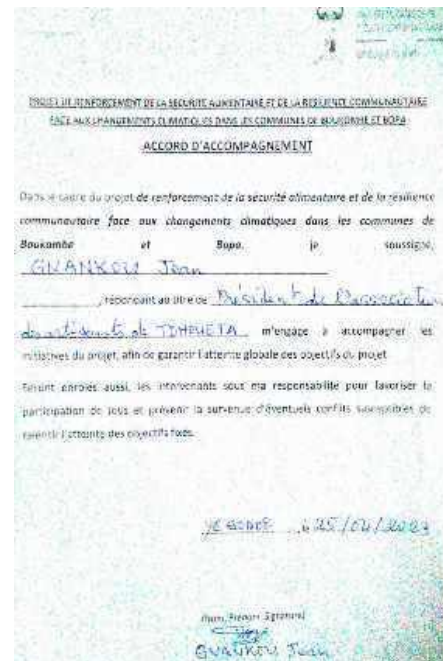 PROJET DE RENFORCEMENT DE LA SECURITE ALIMENTAIRE ET DE LA RESILIENCE COMMUNAUTAIRE
FACE AUX CHANGEMENTS CLIMATIQUES DANS LES COMMUNES DE BOUKOMBE ET BOPA
ACCORD D'ACCOMPAGNEMENT
Dans le cadre du projet de renforcement de la sécurité alimentaire et de la résilience
communautaire face aux changements climatiques dans les communes de
Boukombe et Bopa, je soussigné,
GNANKOU Jean
, répondant au titre de Président de l'association
m'engage à accompagner les
initiatives du projet, afin de garantir l'atteinte globale des objectifs du projet
Seront enrôlés aussi, les intervenants sous ma responsabilité pour favoriser la
participation de tous et prévenir la survenue d'éventuels conflits susceptibles de
ralentir l'atteinte des objectifs fixés.
25/04/2023
(Nom, Prénom, Signature)
GNANKOU Jean